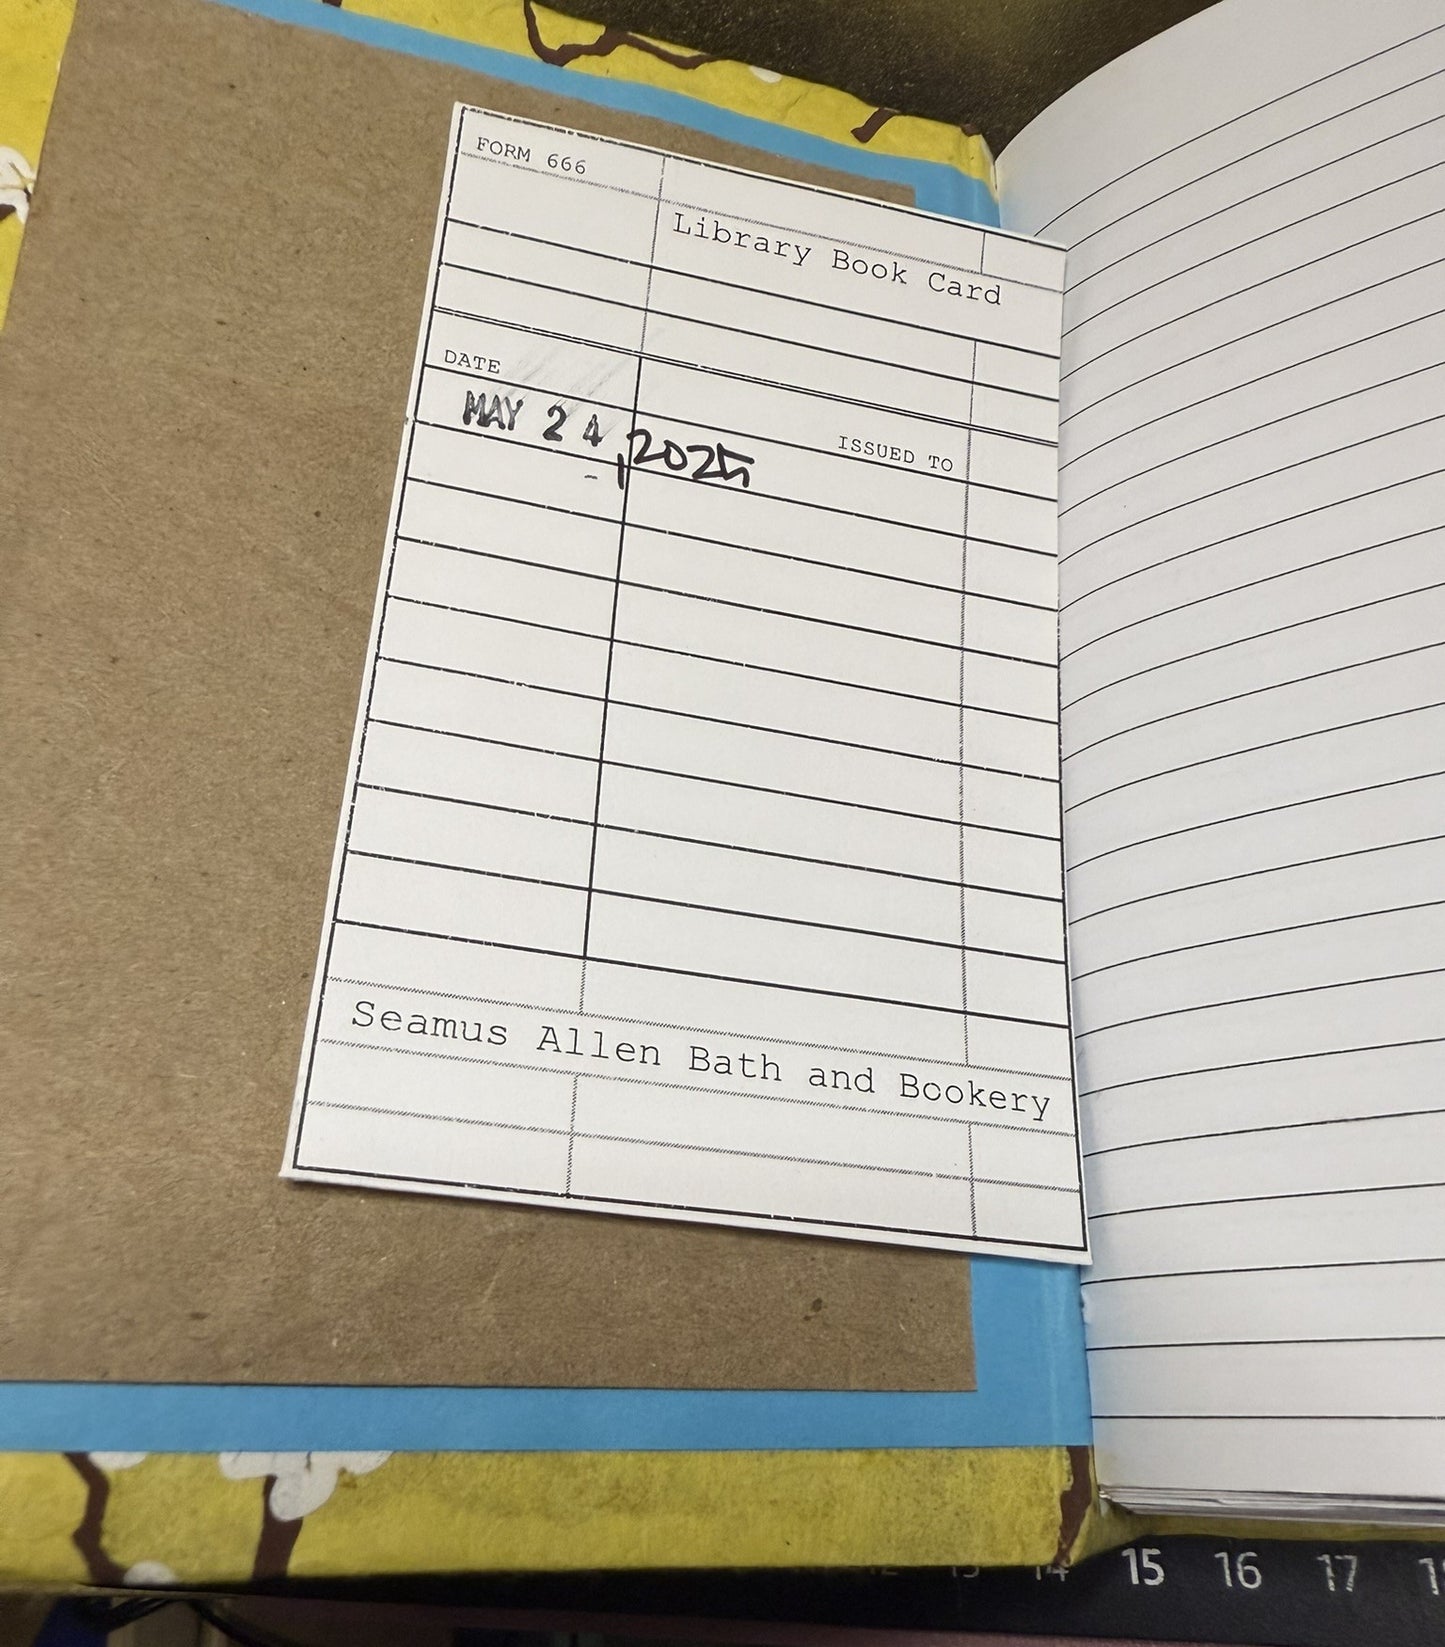 FORM 666
Library Book Card
DATE
ISSUED TO
MAY 24, 2025
Seamus Allen Bath and Bookery
14 15 16 17